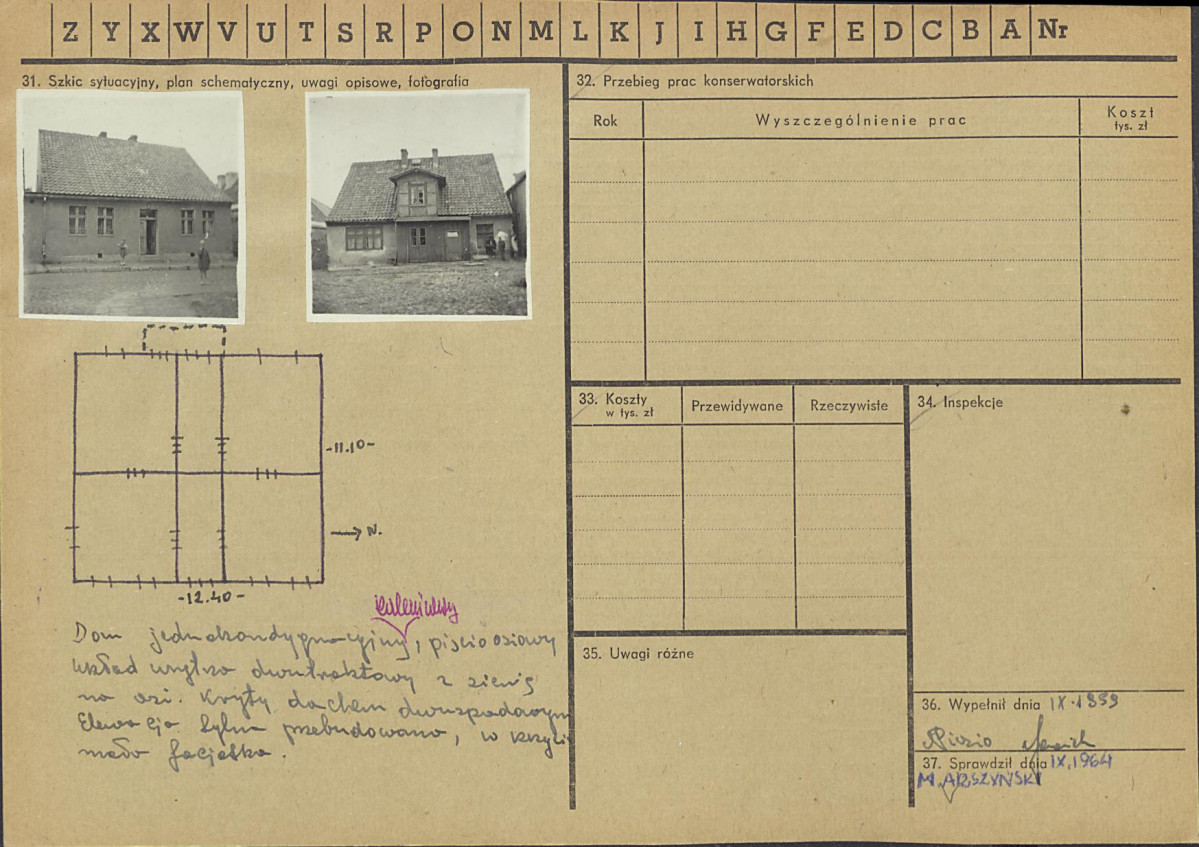 Z Y X W V U T S R P O N M L K J I H G F E D C B A Nr
31. Szkic sytuacyjny, plan schematyczny, uwagi opisowe, fotografia
-11.10-
N.
-12.40-
Dom jednokondygnacyjny, pięcioosiowy
układ wnętrza dwutraktowy z sienią
na osi. Kryty dachem dwuspadowym
Elewacja tylna przebudowana, w
mała facjatka.
32. Przebieg prac konserwatorskich
Rok
Wyszczególnienie prac
Koszt
tys. zł
33. Koszty
w tys. zł
Przewidywane
Rzeczywiste
34. Inspekcje
35. Uwagi różne
36. Wypełnił dnia IX.1959
37. Sprawdził dnia IX.1964
M. ARSZYŃSKI